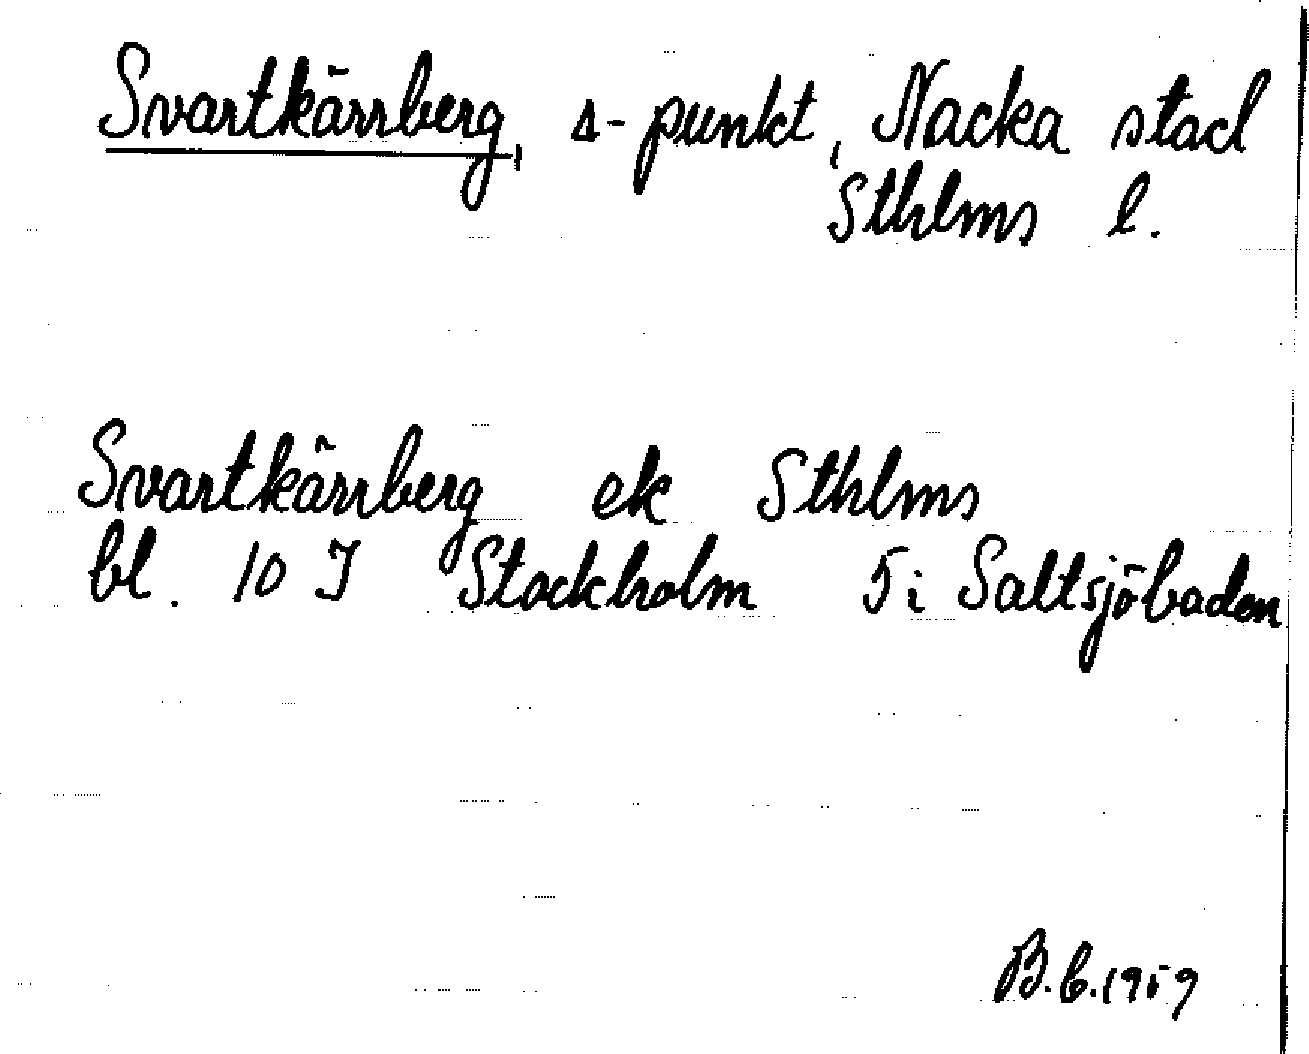 Svartkärrberg, Δ-punkt, Nacka stad
Sthlms l.
Svartkärrberg ek Sthlms
bl. 10 I Stockholm 5 i Saltsjöbaden
B.b.1959